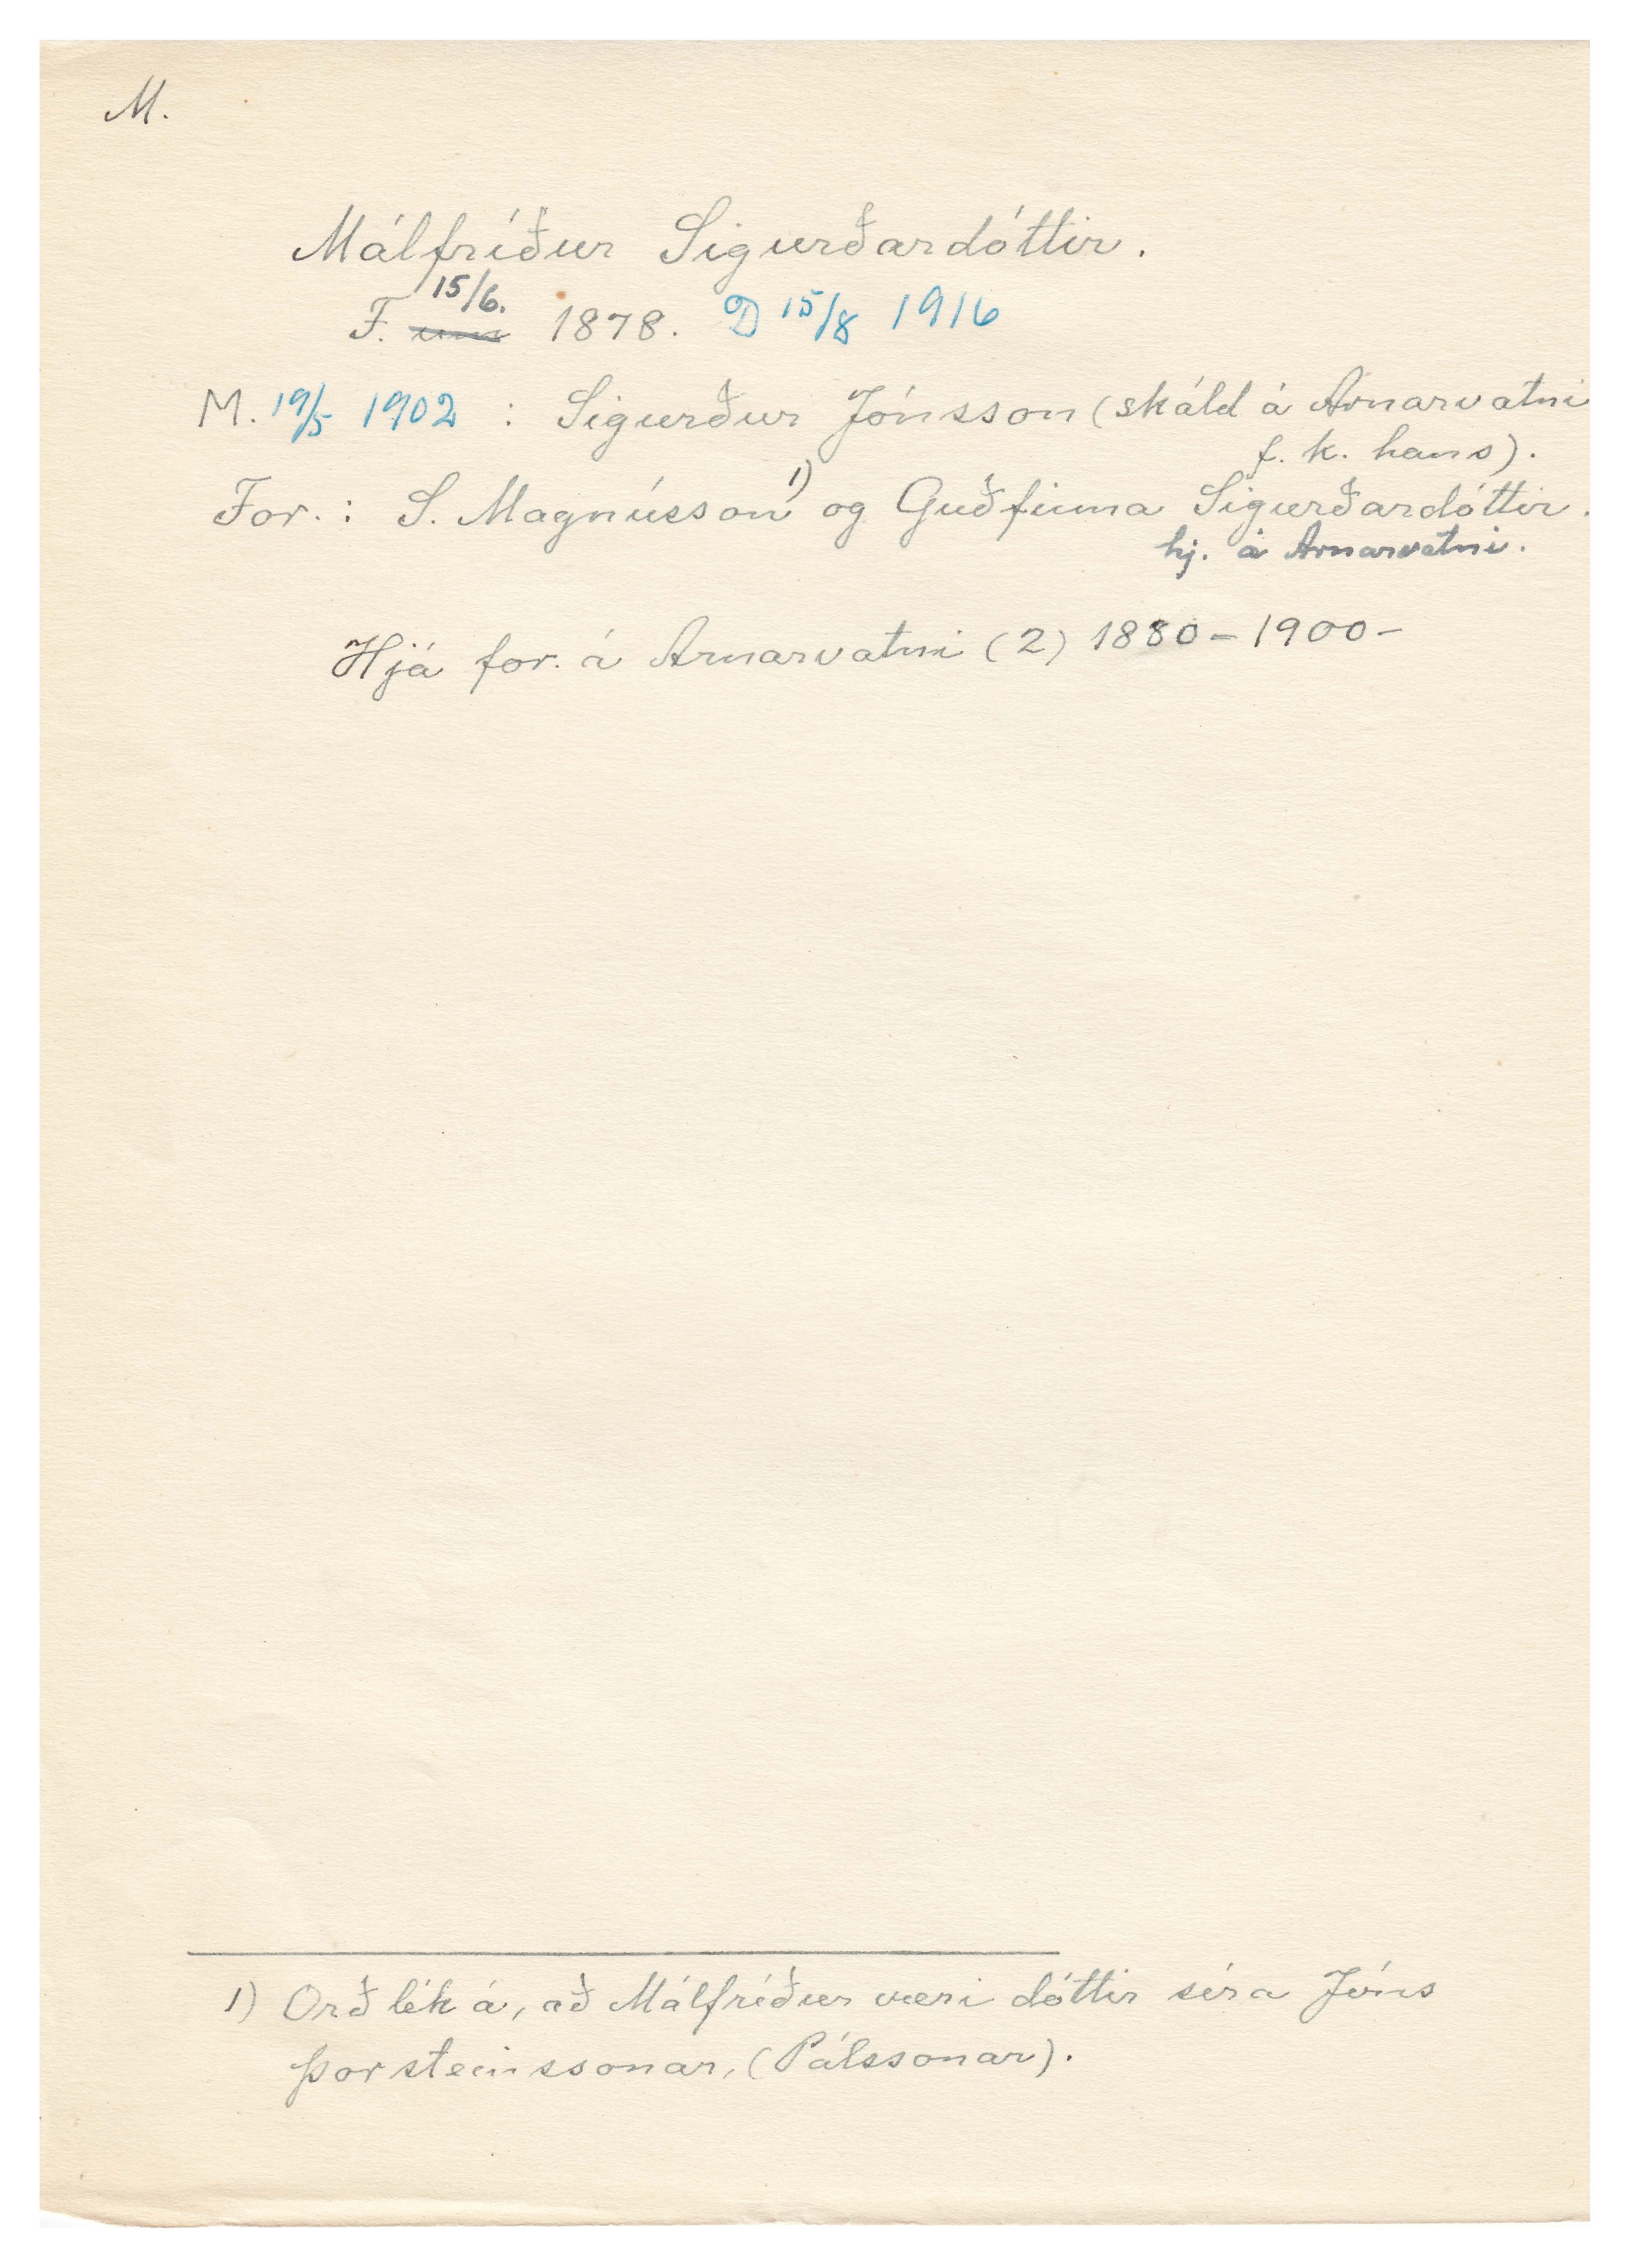 M.
Málfríður Sigurðardóttir.
15/6.
F. um 1878. D 15/8 1916
M. 19/5 1902 : Sigurður Jónsson (skáld á Arnarvatni
f. k. hans).
For.: S. Magnússon 1) og Guðfinna Sigurðardóttir.
hj. á Arnarvatni.
Hjá for. á Arnarvatni (2) 1880-1900-
1) Orð lék á, að Málfríður væri dóttir séra Jóns
Þorsteinssonar, (Pálssonar).